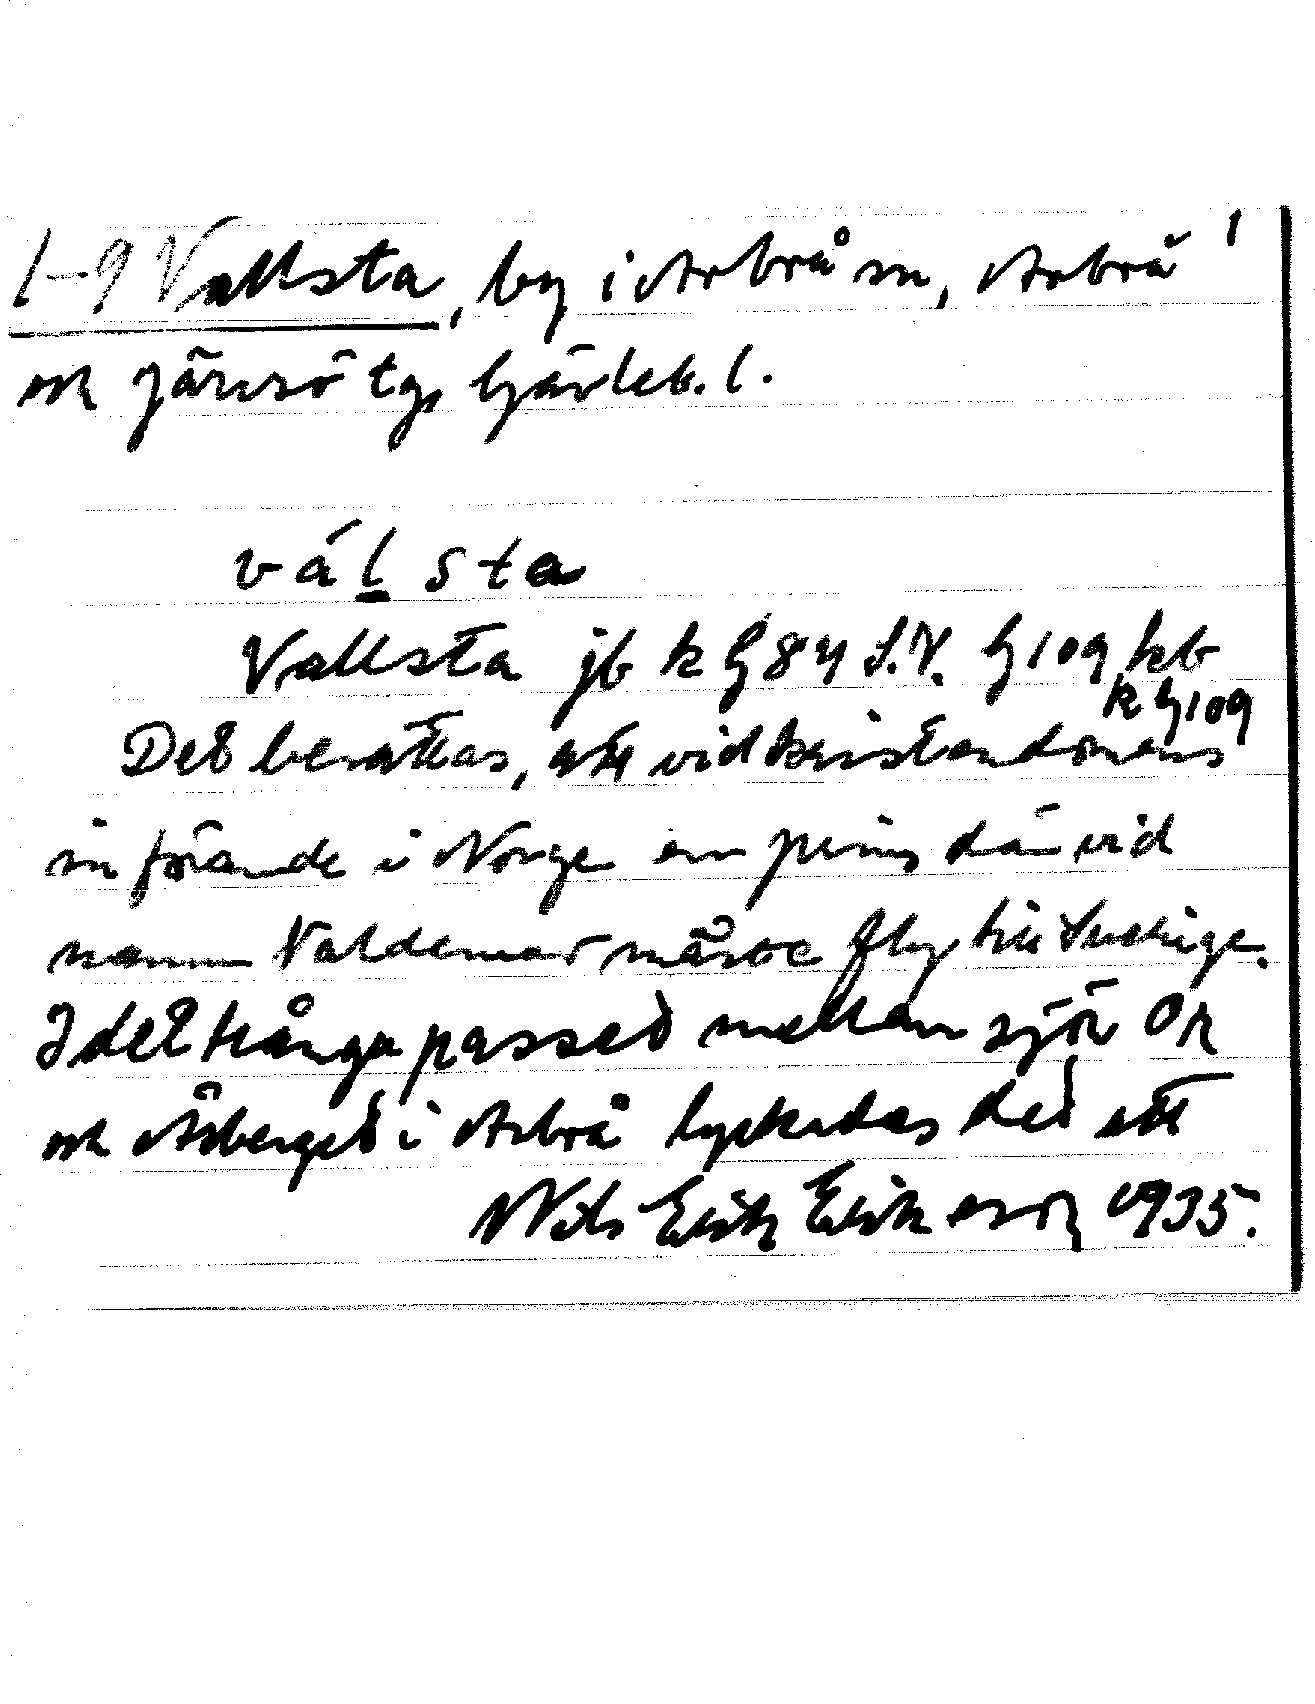 1-9 Vallsta, by i Arbrå sn, Arbrå 1
och Järvsö tg, Gävleb. l.
vá l s t a
Vallsta jb k G 84 S.V. G 109 kb
k G 109
Det berättas, att vid kristendomens
införande i Norge en prins där vid
namn Valdemar måste fly till Sverige.
I det trånga passet mellan sjön Or
och Åsberget i Arbrå lyckades det att
Nils Erik Eriksson 1935.